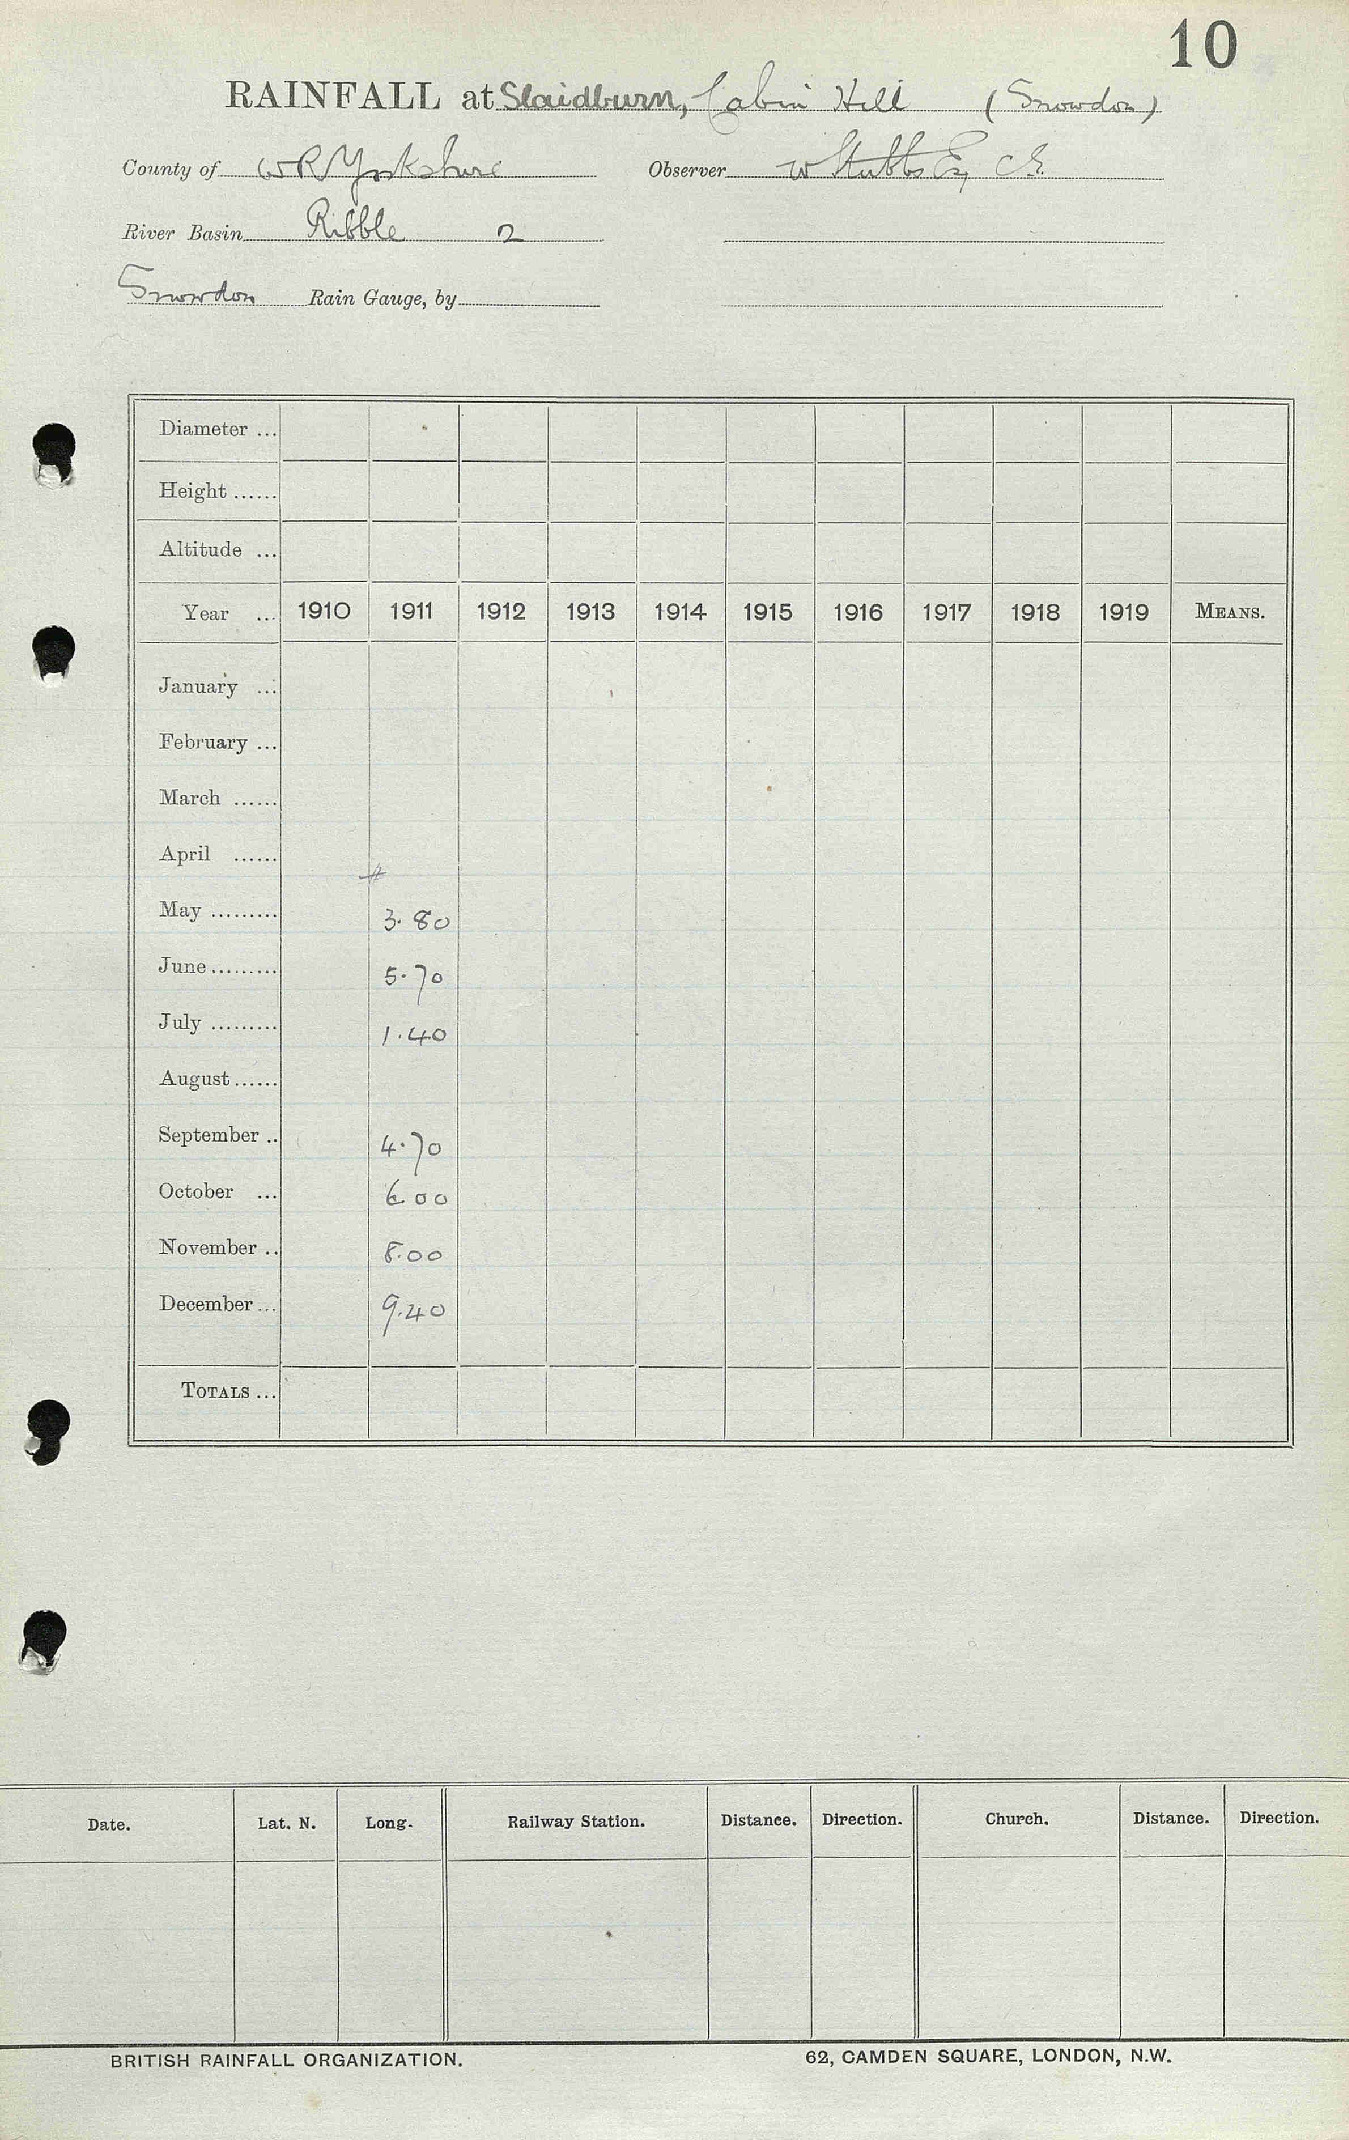 10
RAINFALL at Slaidburn, Cabin Hill (Snowdon)
County of W R Yorkshire Observer W Stubbs Esq C.E.
River Basin Ribble 2
Snowdon Rain Gauge, by
Diameter ...
Height ......
Altitude ...
Year ... 1910 1911 1912 1913 1914 1915 1916 1917 1918 1919 MEANS.
January ...
February ...
March ......
April ......
May ......... 3.80
June ......... 5.70
July ......... 1.40
August ......
September .. 4.70
October ... 6.00
November .. 8.00
December ... 9.40
TOTALS ...
Date. Lat. N. Long. Railway Station. Distance. Direction. Church. Distance. Direction.
BRITISH RAINFALL ORGANIZATION. 62, CAMDEN SQUARE, LONDON, N.W.